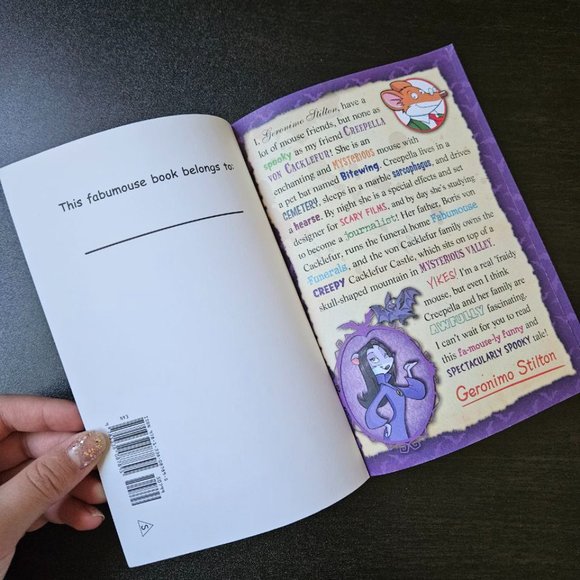 This fabumouse book belongs to:
S
I, Geronimo Stilton, have a
lot of mouse friends, but none as
spooky as my friend CREEPELLA
VON CACKLEFUR! She is an
enchanting and MYSTERIOUS mouse with
a pet bat named Bitewing. Creepella lives in a
CEMETERY, sleeps in a marble sarcophagus, and drives
a hearse. By night she is a special effects and set
designer for SCARY FILMS, and by day she's studying
to become a journalist! Her father, Boris von
Cacklefur, runs the funeral home Fabumouse
Funerals, and the von Cacklefur family owns the
CREEPY Cacklefur Castle, which sits on top of a
skull-shaped mountain in MYSTERIOUS VALLEY.
YIKES! I'm a real 'fraidy
mouse, but even I think
Creepella and her family are
AWFULLY fascinating.
I can't wait for you to read
this fa-mouse-ly funny and
SPECTACULARLY SPOOKY tale!
Geronimo Stilton